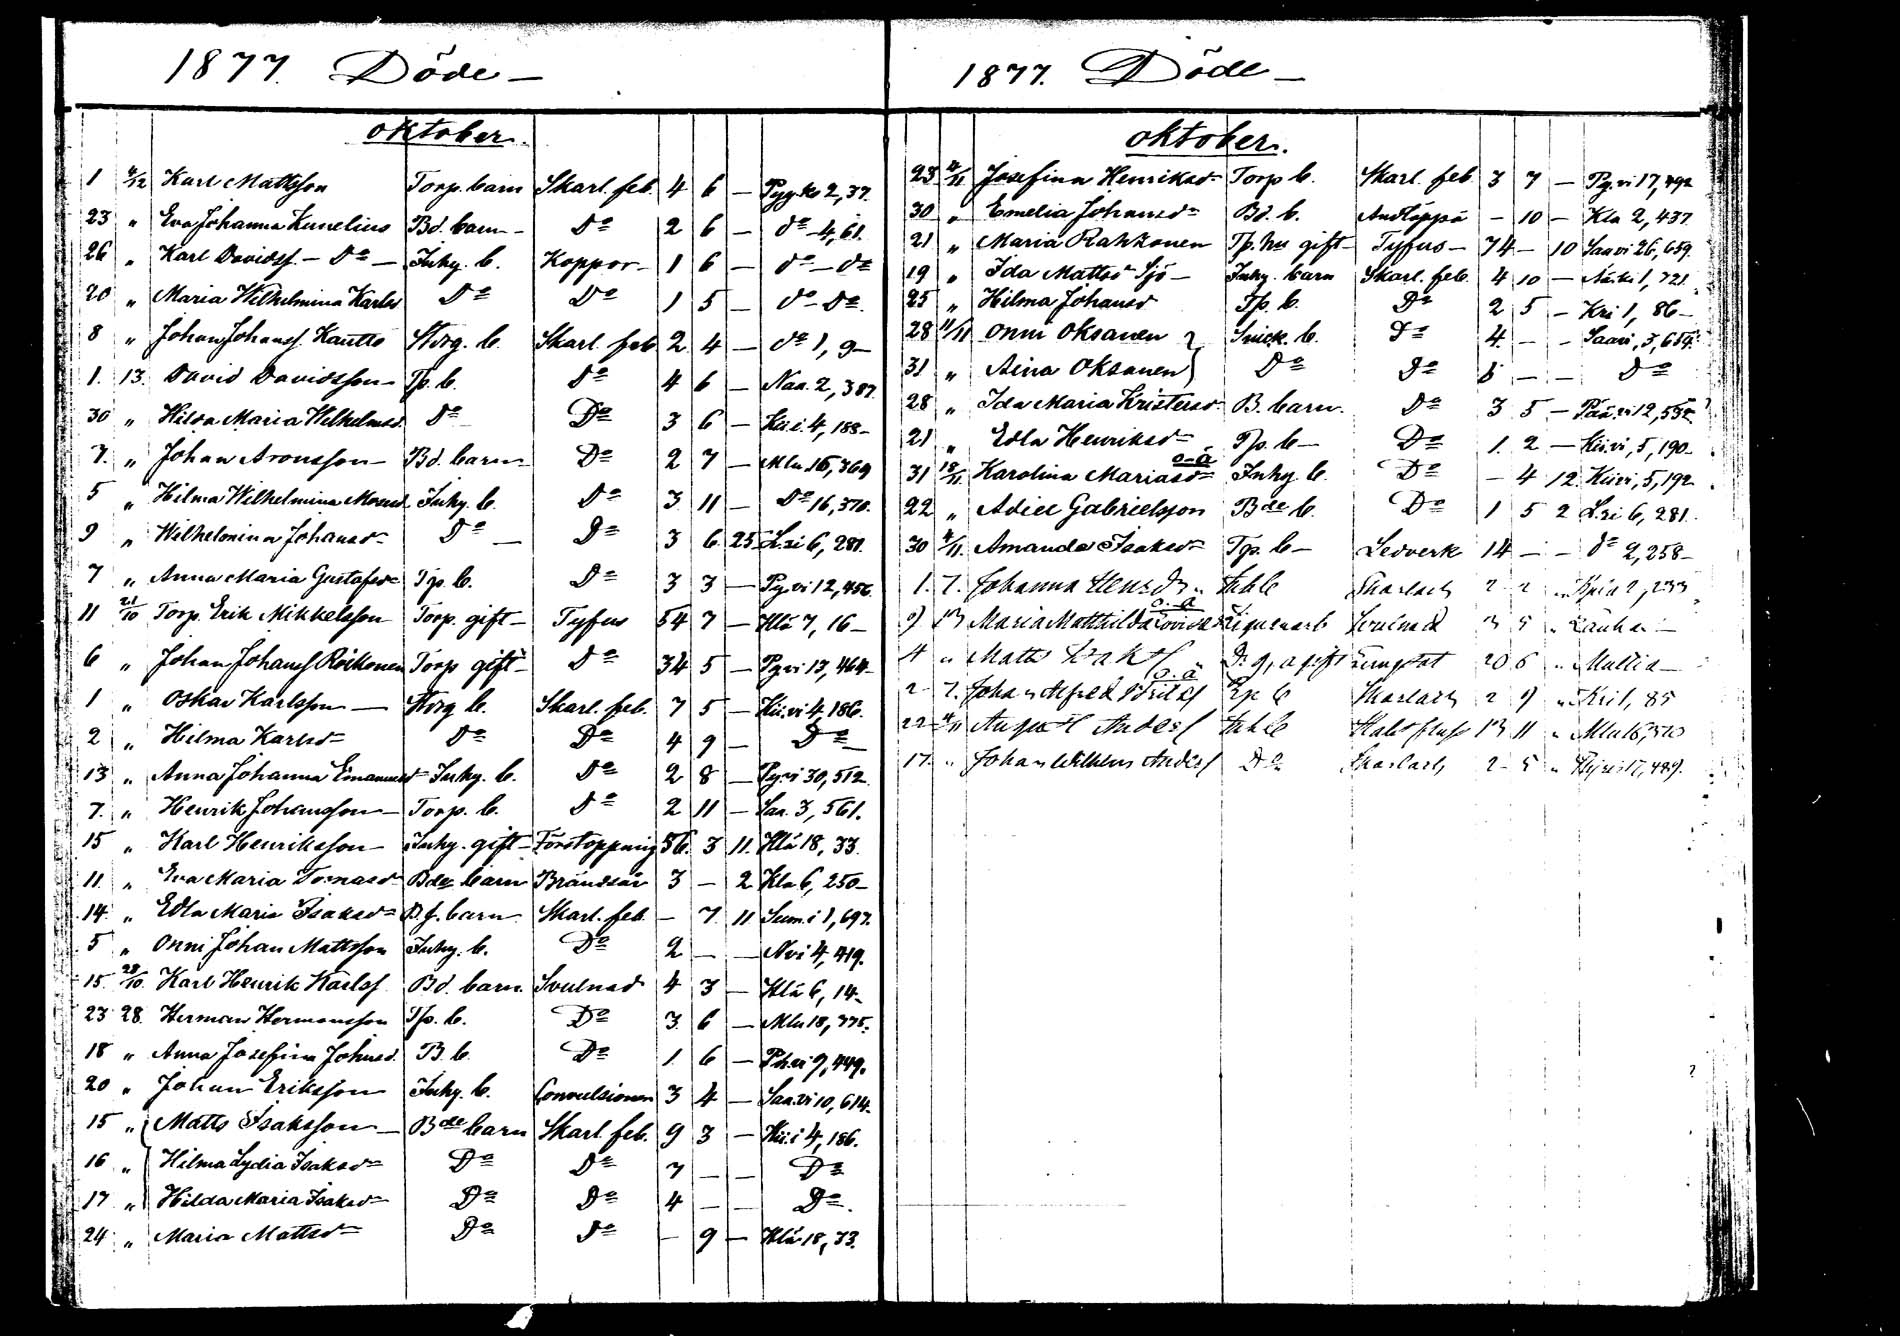 1877. Döde —
oktober.
1 Karl Mattsson Torp. barn Skarl. feb. 4 6 — 2,37.
23 „ Eva Johanna Bd. barn — Do 2 6 — do — 4,61.
26 „ Karl Davidss. — Do — Inhy. b. Koppor — 1 6 — do — do
20 „ Maria Wilhelmina Karlsd Do Do 1 5 — do — Do
8 „ Johan Johanss. Kautto b. Skarl. feb 2 4 — do 1, 9 —
1. 13. David Davidsson — Tp. b. Do 4 6 — Naa. 2, 387
30 „ Hilda Maria Wilhelmsd. Do Do 3 6 — 4, 188 —
7. „ Johan Aronsson — Bd. barn — Do 2 7 — Mlu. 16, 369
5 „ Hilma Wilhelmina Inhy. b. Do 3 11 — Do 16, 370.
9 „ Wilhelmina Johansd — Do — Do 3 6 25 L.si 6, 281.
7 „ Anna Maria Gustafsd Tp. b. Do 3 3 — Py.vi 12, 456.
11 21/10 Torp. Erik Mikkelsson Torp. gift — Tyfus 54 7 — Hlä 7, 16 —
6 „ Johan Johanss Roikonen Torp gift — Do 34 5 — Py.vi 13, 464
1 „ Oskar Karlsson — b. Skarl. feb. 7 5 — Kii.vi 4, 186.
2 „ Hilma Karlsd Do Do 4 9 — Do —
13 „ Anna Johanna Emanuelsd Inhy. b. Do 2 8 — Py.vi 30, 512
7. „ Henrik Johansson — Torp. b. Do 2 11 — Saa. 3, 561.
15 „ Karl Henriksson — Inhy. gift — Förstoppning 56. 3 11. Hlä 18, 33.
11. „ Eva Maria Tomasd Bde barn Brändsår 3 — 2 Kla 6, 250 —
14. „ Edla Maria Isaksd barn Skarl. feb. — 7. 11 Sum. i 1, 697.
5 „ Onni Johan Mattsson Inhy. b. Do 2 — — N.vi 4, 419.
15. 28/10 Karl Henrik Karlss Bd. barn. Svulnad 4 3 — Hlä 6, 14 —
23 28. Herman Hermansson Tp. b. Do 3. 6 — Mlu 18, 775.
18 „ Anna Josefina Johansd. B. b. Do 1. 6 — 9, 449.
20 „ Johan Eriksson Inhy. b. Convulsioner 3 4 — Saa.vi 10, 614.
15 „ Matts Isaksson — Bde barn Skarl. feb. 9 3 — Kii.i 4, 186.
16 „ Hilma Lydia Isaksd Do Do 7 — — Do
17 „ Hilda Maria Isaksd Do Do 4 — — Do.
24 „ Maria Mattsd Do Do — 9 — Hlä 18, 33.
1877. Döde —
oktober.
23 4/11 Josefina Henriksd Torp b. Skarl. feb 3 7 — Py.vi 17, 492
30 „ Emelia Johansd Bd. b. Andtäppa — 10 — Kla 2, 437
21 „ Maria Rahkonen Tp. hu gift — Tyfus — 74 — 10 Saa.vi 26, 659.
19 „ Ida Mattsd Sjö — Inhy. barn Skarl. feb. 4 10 — 1, 721
25 „ Hilma Johansd Tp. b. Do 2 5 — Kri 1, 86 —
28 11/11 Onni Oksanen Snick. b. Do 4. — — Saa.vi, 3, 659.
31 „ Aina Oksanen Do Do — — Do
28 „ Ida Maria Kristersd. B. barn. Do 3 5 — 12, 552
21 „ Edla Henriksd Tp. b — Do 1. 2 — Kii.vi, 5, 190 —
o.ä
31 18/11 Karolina Mariasd Inhy. b. Do — 4 12. Kii.vi, 5, 192
22 „ Adiel Gabrielsson Bde b. Do 1 5 2 L.si 6, 281.
30 4/11. Amanda Isaksd Tp. b — Ledverk 14 — — do 2, 258 —
1. 7. Johanna b Skarlach 2 2 „ 2, 233
o.ä
9 13 Maria Mathilda Svulnad 13 5 „
4 „ Matts gift 20 6 „ Mullia —
o.ä
2 7. Johan Alfred Tp b Skarlach 2 9 „ Kri 1, 85
22 4/11 August Anderss b 13 11 „ Mlu 16, 370
17. „ Johan Wilhelm Anderss Do Skarlach 2 5 „ 17, 489.